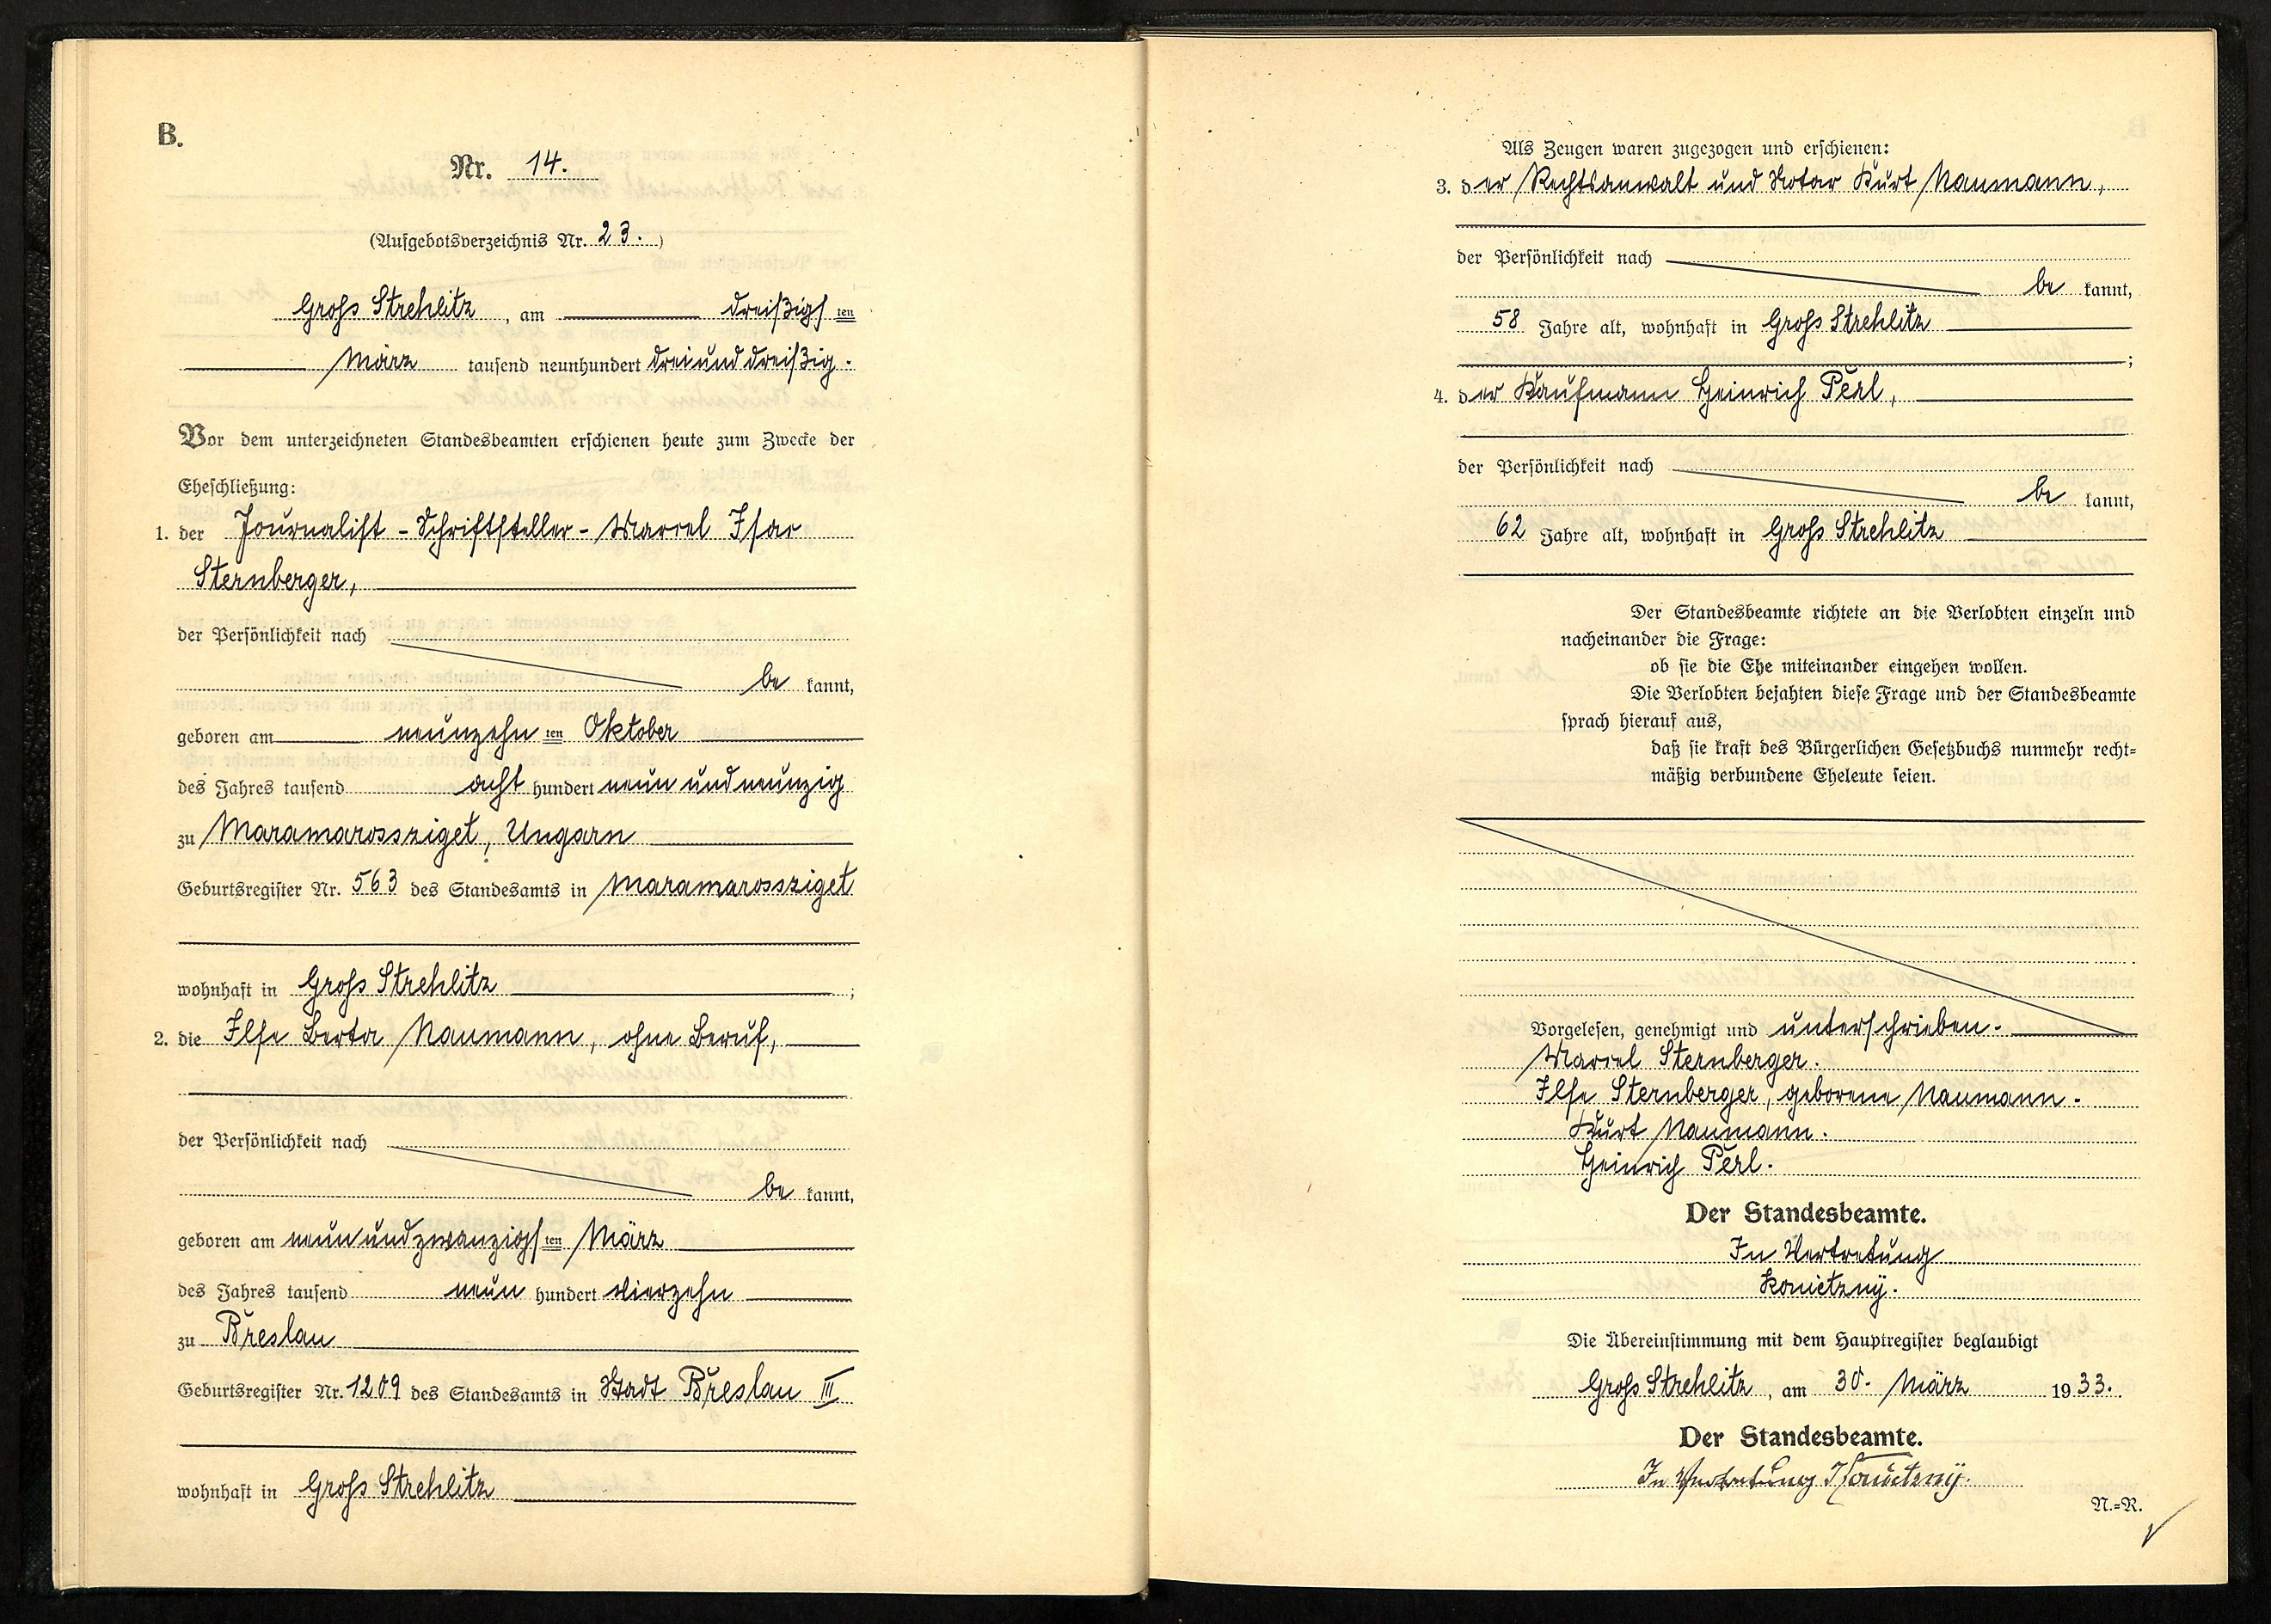 B.
Nr. 14.
(Aufgebotsverzeichnis Nr. 23.)
Groß Strehlitz, am dreißigsten
März tausend neunhundert dreiunddreißig.
Vor dem unterzeichneten Standesbeamten erschienen heute zum Zwecke der
Eheschließung:
1. der Journalist - Schriftsteller - Marcel Isac
Sternberger,
der Persönlichkeit nach
bekannt,
geboren am neunzehnten Oktober
des Jahres tausend acht hundert neunundneunzig
zu Maramarossziget, Ungarn
Geburtsregister Nr. 563 des Standesamts in Maramarossziget
wohnhaft in Groß Strehlitz;
2. die Ilse Berta Naumann, ohne Beruf,
der Persönlichkeit nach
bekannt,
geboren am neunundzwanzigsten März
des Jahres tausend neun hundert vierzehn
zu Breslau
Geburtsregister Nr. 1209 des Standesamts in Stadt Breslau III
wohnhaft in Groß Strehlitz
Als Zeugen waren zugezogen und erschienen:
3. der Rechtsanwalt und Notar Kurt Naumann,
der Persönlichkeit nach
bekannt,
58 Jahre alt, wohnhaft in Groß Strehlitz
;
4. der Kaufmann Heinrich Perl,
der Persönlichkeit nach
bekannt,
62 Jahre alt, wohnhaft in Groß Strehlitz
Der Standesbeamte richtete an die Verlobten einzeln und
nacheinander die Frage:
ob sie die Ehe miteinander eingehen wollen.
Die Verlobten bejahten diese Frage und der Standesbeamte
sprach hierauf aus,
daß sie kraft des Bürgerlichen Gesetzbuchs nunmehr recht=
mäßig verbundene Eheleute seien.
Vorgelesen, genehmigt und unterschrieben.
Marcel Sternberger.
Ilse Sternberger, geborene Naumann.
Kurt Naumann.
Heinrich Perl.
Der Standesbeamte.
In Vertretung
Konietzny.
Die Übereinstimmung mit dem Hauptregister beglaubigt
Groß Strehlitz, am 30. März 1933.
Der Standesbeamte.
In Vertretung Konietzny.
N.=R.